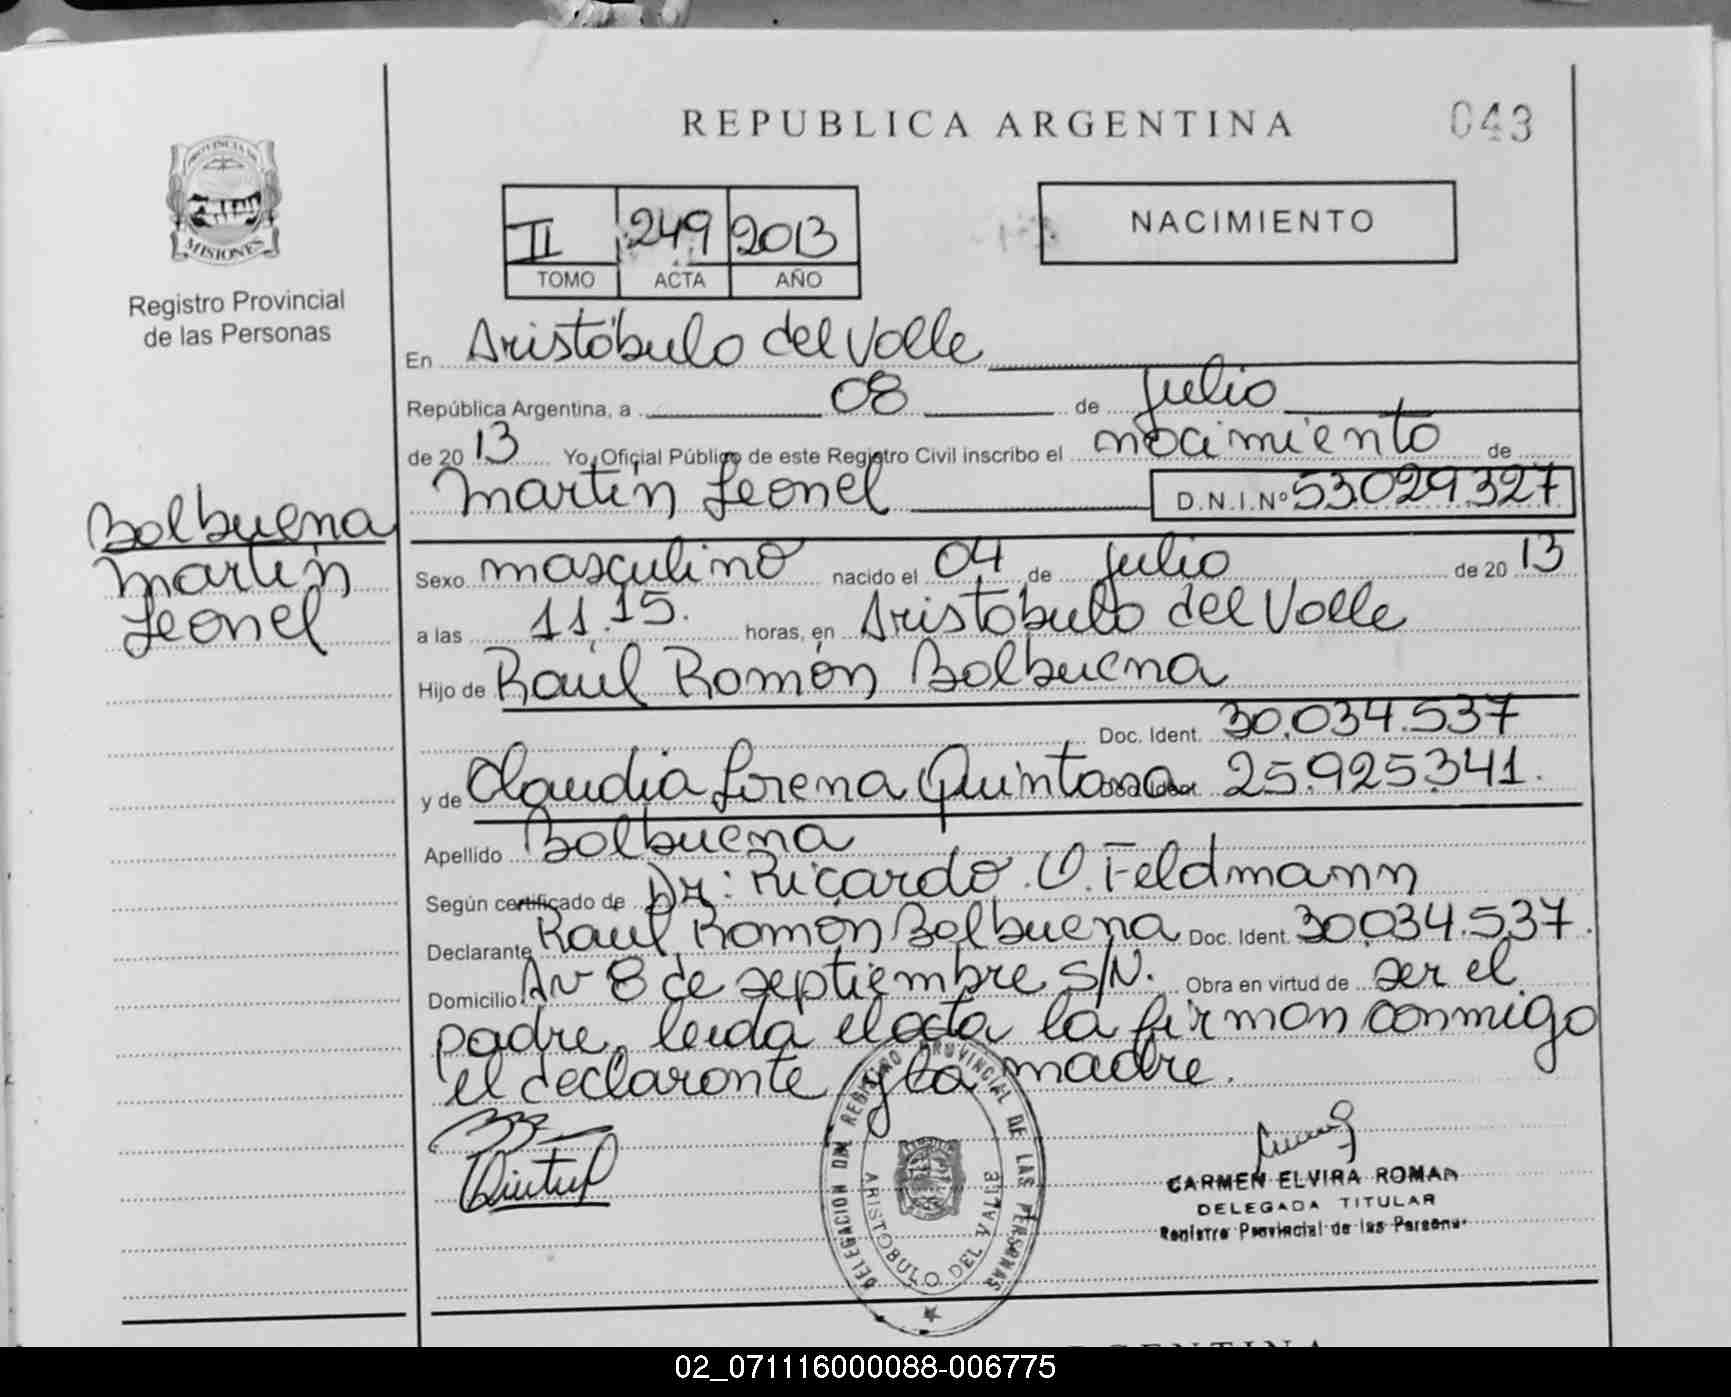 REPUBLICA ARGENTINA
043
PROVINCIA DE
MISIONES
Registro Provincial
de las Personas
II 249 2013
TOMO ACTA AÑO
NACIMIENTO
En Aristóbulo del Valle
República Argentina, a 08 de Julio
de 2013 Yo, Oficial Público de este Registro Civil inscribo el nacimiento de
Martín Leonel D.N.I.Nº 53.029.327
Balbuena
Martín
Leonel
Sexo masculino nacido el 04 de Julio de 2013
a las 11.15. horas, en Aristóbulo del Valle
Hijo de Raúl Ramón Balbuena
Doc. Ident. 30.034.537
y de Claudia Lorena Quintana 25.925.341.
Apellido Balbuena
Según certificado de Dr: Ricardo O. Feldmann
Declarante Raúl Ramón Balbuena Doc. Ident. 30.034.537.
Domicilio Av 8 de septiembre S/N. Obra en virtud de ser el
padre, leída el acta la firman conmigo
el declarante y la madre.
DELEGACION DEL REGISTRO PROVINCIAL DE LAS PERSONAS
ARISTOBULO DEL VALLE
CARMEN ELVIRA ROMAN
DELEGADA TITULAR
Registro Provincial de las Personas
02_071116000088-006775